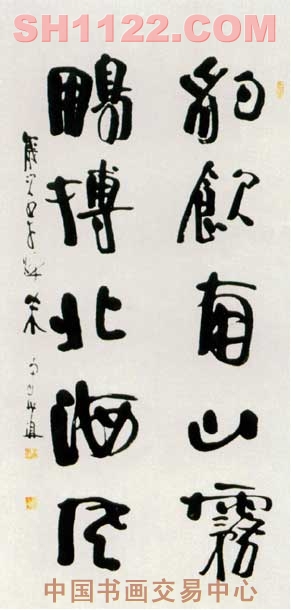 SH1122.COM
豹飲南山霧
鵬搏北海风
中国书画交易中心